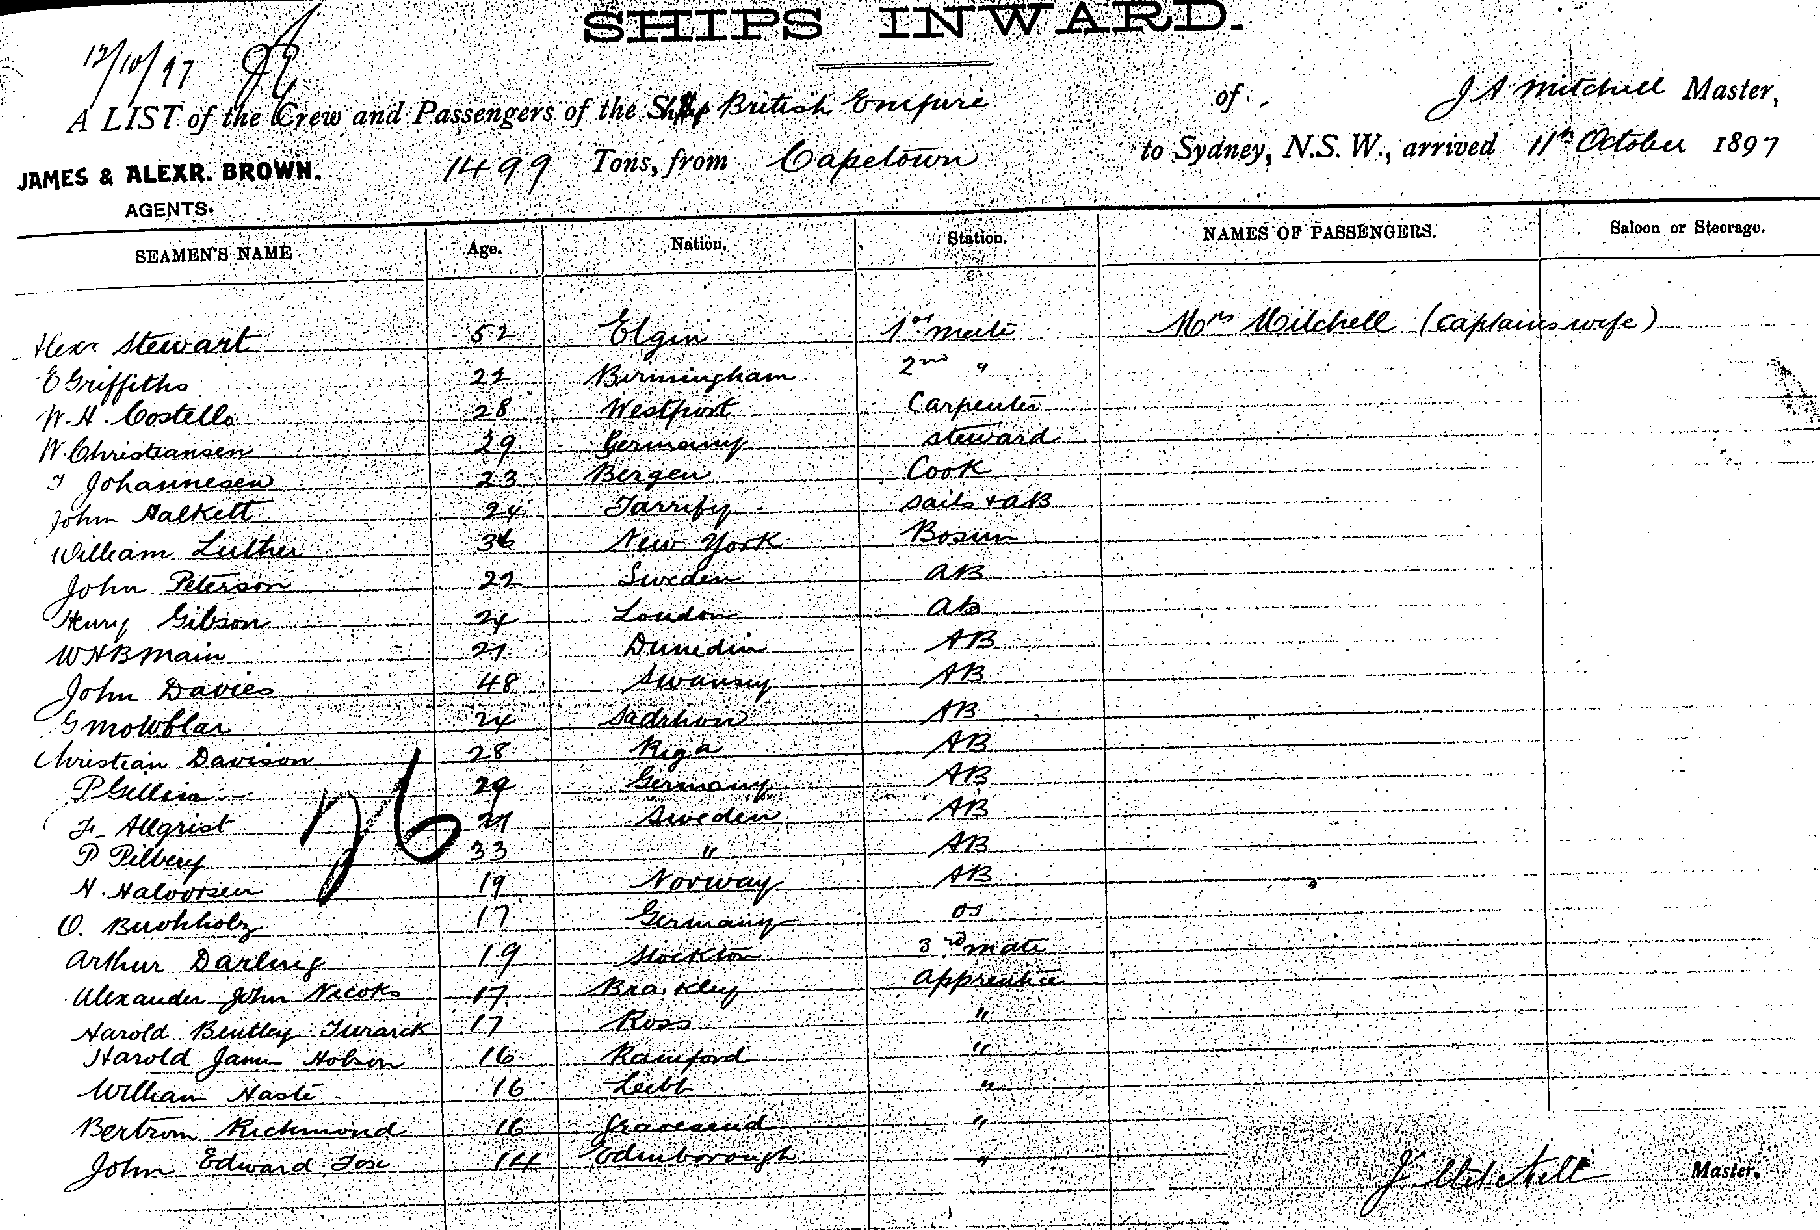 SHIPS INWARD.
12/10/97
A LIST of the Crew and Passengers of the Ship British Empire of J A Mitchell Master,
JAMES & ALEXR. BROWN. 1499 Tons, from Capetown to Sydney, N.S.W., arrived 11th October 1897
AGENTS.
SEAMEN'S NAME Age. Nation. Station. NAMES OF PASSENGERS. Saloon or Steerage.
Alexr Stewart 52 Elgin 1st mate Mrs Mitchell (captains wife)
E Griffiths 22 Birmingham 2nd "
W. H. Costello 28 Westport Carpenter
W. Christiansen 29 Germany Steward
J Johannesen 23 Bergen Cook
John Halkett 24 sails + AB
William Luther 36 New York Bosun
John Peterson 22 Sweden AB
Henry Gibson 24 London AB
W H B Main 21 Dunedin AB
John Davies 48 Swansy AB
G 24 AB
Christian Davison 28 Riga AB
P 29 Germany AB
F. Allgrist 21 Sweden AB
P Pilbery 33 " AB
H. Halvorsen 19 Norway AB
O. Buchholz 17 Germany OS
Arthur Darling 19 Stockton 3rd mate
Alexander John 17 Brackley Apprentice
Harold Bentley 17 Ross "
Harold James Hobson 16 Rainford "
William Haste 16 "
Bertrom Richmond 16 Gravesend "
John Edward Fox 14 Edinborough "
26
J Mitchell Master.